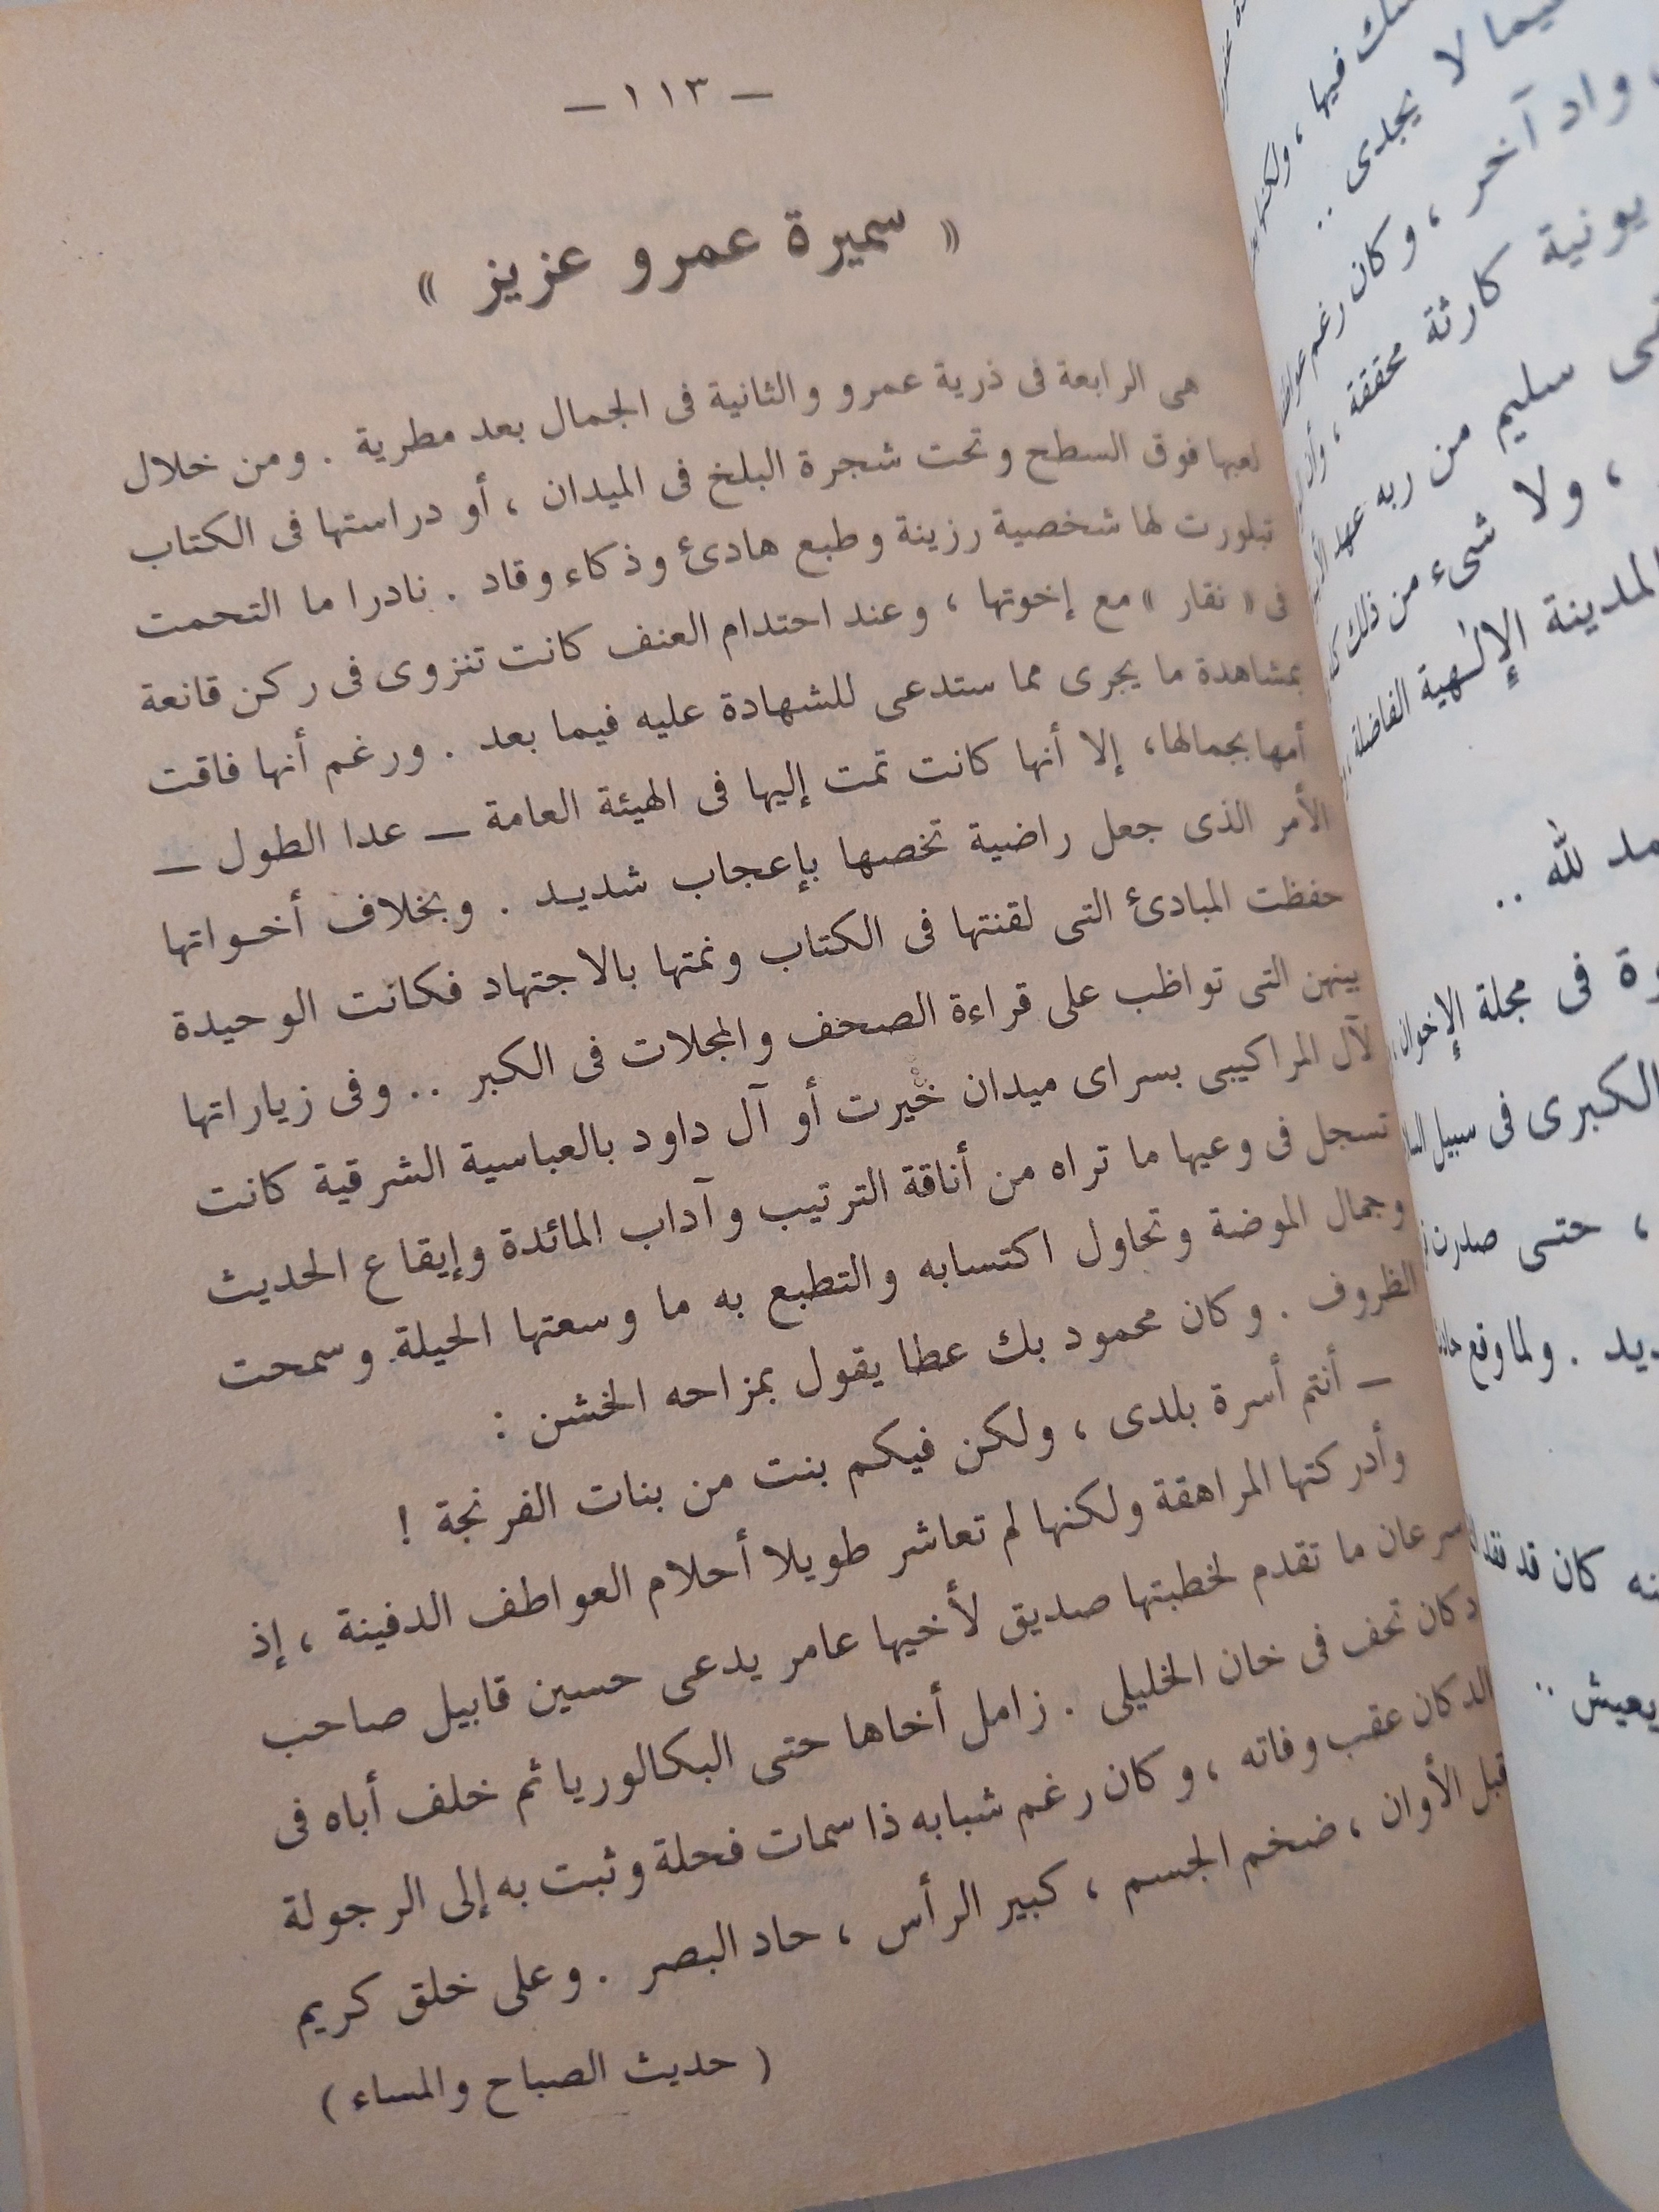 — ١١٣ —
« سميرة عمرو عزيز »
هى الرابعة فى ذرية عمرو والثانية فى الجمال بعد مطرية . ومن خلال
لعبها فوق السطح وتحت شجرة البلخ فى الميدان ، أو دراستها فى الكتاب
تبلورت لها شخصية رزينة وطبع هادئ وذكاء وقاد . نادرا ما التحمت
فى « نقار » مع إخوتها ، وعند احتدام العنف كانت تنزوى فى ركن قانعة
بمشاهدة ما يجرى مما ستدعى للشهادة عليه فيما بعد . ورغم أنها فاقت
أمها بجمالها، إلا أنها كانت تمت إليها فى الهيئة العامة — عدا الطول —
الأمر الذى جعل راضية تخصها بإعجاب شديد . وبخلاف أخواتها
حفظت المبادئ التى لقنتها فى الكتاب ونمتها بالاجتهاد فكانت الوحيدة
بينهن التى تواظب على قراءة الصحف والمجلات فى الكبر .. وفى زياراتها
لآل المراكيبى بسراى ميدان خيرت أو آل داود بالعباسية الشرقية كانت
تسجل فى وعيها ما تراه من أناقة الترتيب وآداب المائدة وإيقاع الحديث
وجمال الموضة وتحاول اكتسابه والتطبع به ما وسعتها الحيلة وسمحت
الظروف . وكان محمود بك عطا يقول بمزاحه الخشن :
— أنتم أسرة بلدى ، ولكن فيكم بنت من بنات الفرنجة !
وأدركتها المراهقة ولكنها لم تعاشر طويلا أحلام العواطف الدفينة ، إذ
سرعان ما تقدم لخطبتها صديق لأخيها عامر يدعى حسين قابيل صاحب
دكان تحف فى خان الخليلى . زامل أخاها حتى البكالوريا ثم خلف أباه فى
الدكان عقب وفاته ، وكان رغم شبابه ذا سمات فحلة وثبت به إلى الرجولة
قبل الأوان ، ضخم الجسم ، كبير الرأس ، حاد البصر . وعلى خلق كريم
( حديث الصباح والمساء )
فيها ، ولكنها
لا يجدى ..
واد آخر ، وكان رغم
يونية كارثة محققة ،
سليم من ربه
، ولا شىء من ذلك
المدينة الإلهية الفاضلة ..
لله ..
فى مجلة الإخوان
الكبرى فى سبيل
، حتى صدرت
. ولما وقع
كان قد
يعيش ..